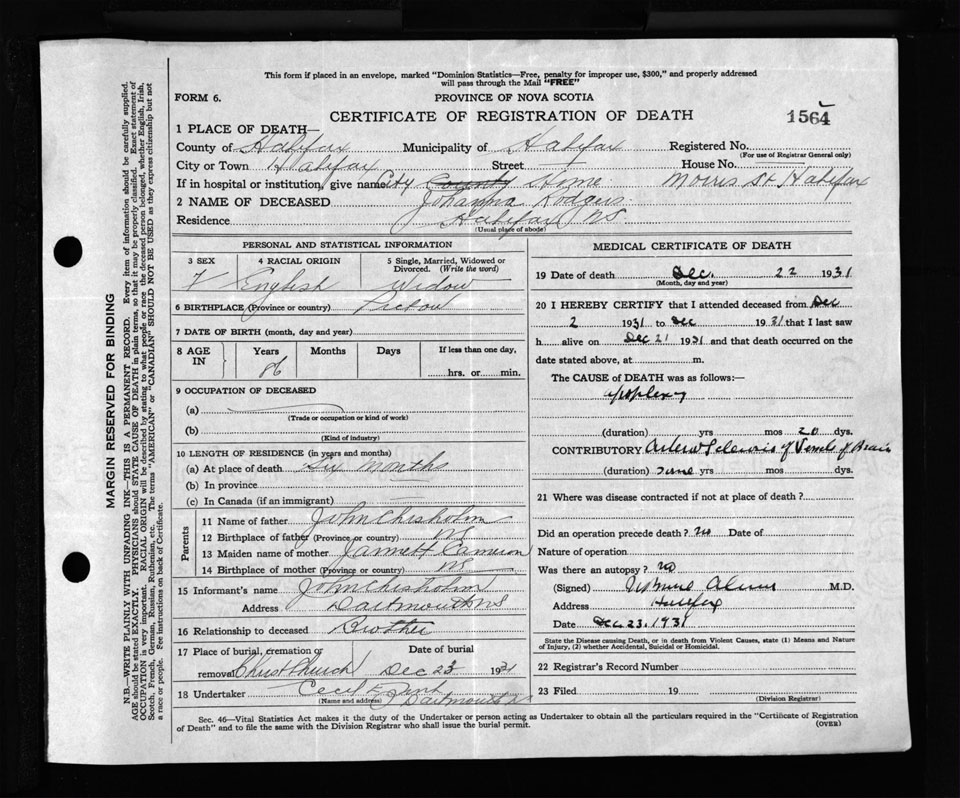 This form if placed in an envelope, marked "Dominion Statistics—Free, penalty for improper use, $300," and properly addressed
will pass through the Mail "FREE"
FORM 6.
PROVINCE OF NOVA SCOTIA
CERTIFICATE OF REGISTRATION OF DEATH
1564
1 PLACE OF DEATH—
County of Halifax Municipality of Halifax Registered No.
(For use of Registrar General only)
City or Town Halifax Street — House No.
If in hospital or institution, give name City County Home Morris St Halifax
2 NAME OF DECEASED Johanna Rodgers
Residence Halifax NS
(Usual place of abode)
PERSONAL AND STATISTICAL INFORMATION
3 SEX 4 RACIAL ORIGIN 5 Single, Married, Widowed or Divorced. (Write the word)
F English Widow
6 BIRTHPLACE (Province or country) Pictou
7 DATE OF BIRTH (month, day and year)
8 AGE IN Years Months Days If less than one day,
86 hrs. or min.
9 OCCUPATION OF DECEASED
(a)
(Trade or occupation or kind of work)
(b)
(Kind of industry)
10 LENGTH OF RESIDENCE (in years and months)
(a) At place of death Six months
(b) In province
(c) In Canada (if an immigrant)
Parents
11 Name of father John Chisholm
12 Birthplace of father (Province or country) NS
13 Maiden name of mother Jannett Cameron
14 Birthplace of mother (Province or country) NS
15 Informant's name John Chisholm
Address Dartmouth NS
16 Relationship to deceased Brother
17 Place of burial, cremation or removal Date of burial
Christ Church Dec 23 1931
18 Undertaker Cecil E
(Name and address) Dartmouth
MEDICAL CERTIFICATE OF DEATH
19 Date of death Dec. 22 1931
(Month, day and year)
20 I HEREBY CERTIFY that I attended deceased from Dec
2 1931 to Dec 1931 that I last saw
h alive on Dec 21 1931 and that death occurred on the
date stated above, at m.
The CAUSE of DEATH was as follows:
apoplexy
(duration) yrs mos 20 dys.
CONTRIBUTORY Arterio Sclerosis of Vessels of Brain
(duration) some yrs mos dys.
21 Where was disease contracted if not at place of death?
Did an operation precede death? no Date of
Nature of operation
Was there an autopsy? no
(Signed) M.D.
Address Halifax
Date Dec. 23. 1931
State the Disease causing Death, or in death from Violent Causes, state (1) Means and Nature
of Injury, (2) whether Accidental, Suicidal or Homicidal.
22 Registrar's Record Number
23 Filed 19
(Division Registrar)
Sec. 46—Vital Statistics Act makes it the duty of the Undertaker or person acting as Undertaker to obtain all the particulars required in the "Certificate of Registration
of Death" and to file the same with the Division Registrar who shall issue the burial permit.
(OVER)
MARGIN RESERVED FOR BINDING
N.B.—WRITE PLAINLY WITH UNFADING INK—THIS IS A PERMANENT RECORD. Every item of information should be carefully supplied.
AGE should be stated EXACTLY. PHYSICIANS should STATE CAUSE OF DEATH in plain terms, so that it may be properly classified. Exact statement of
OCCUPATION is very important. RACIAL ORIGIN will be described by stating to what people or race the deceased person belonged, whether English, Irish,
Scotch, French, German, Russian, Ruthenian, etc. The terms "AMERICAN" or "CANADIAN" SHOULD NOT BE USED as they express citizenship but not
a race or people. See instructions on back of Certificate.